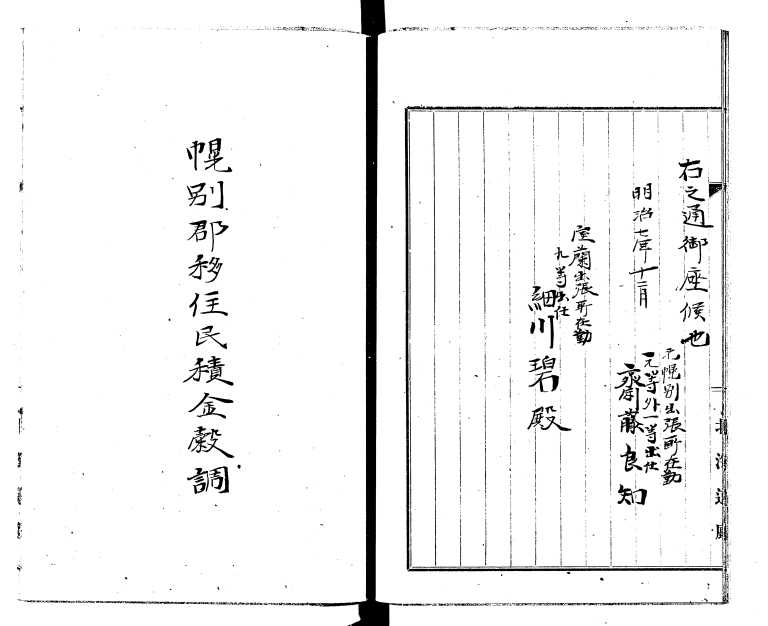 右之通御座候也
明治七年十二月
元幌別出張所在勤
元等外一等出仕
齋藤良知
室蘭出張所在勤
九等出仕
細川碧殿
北海道廳
幌別郡移住民積金穀調